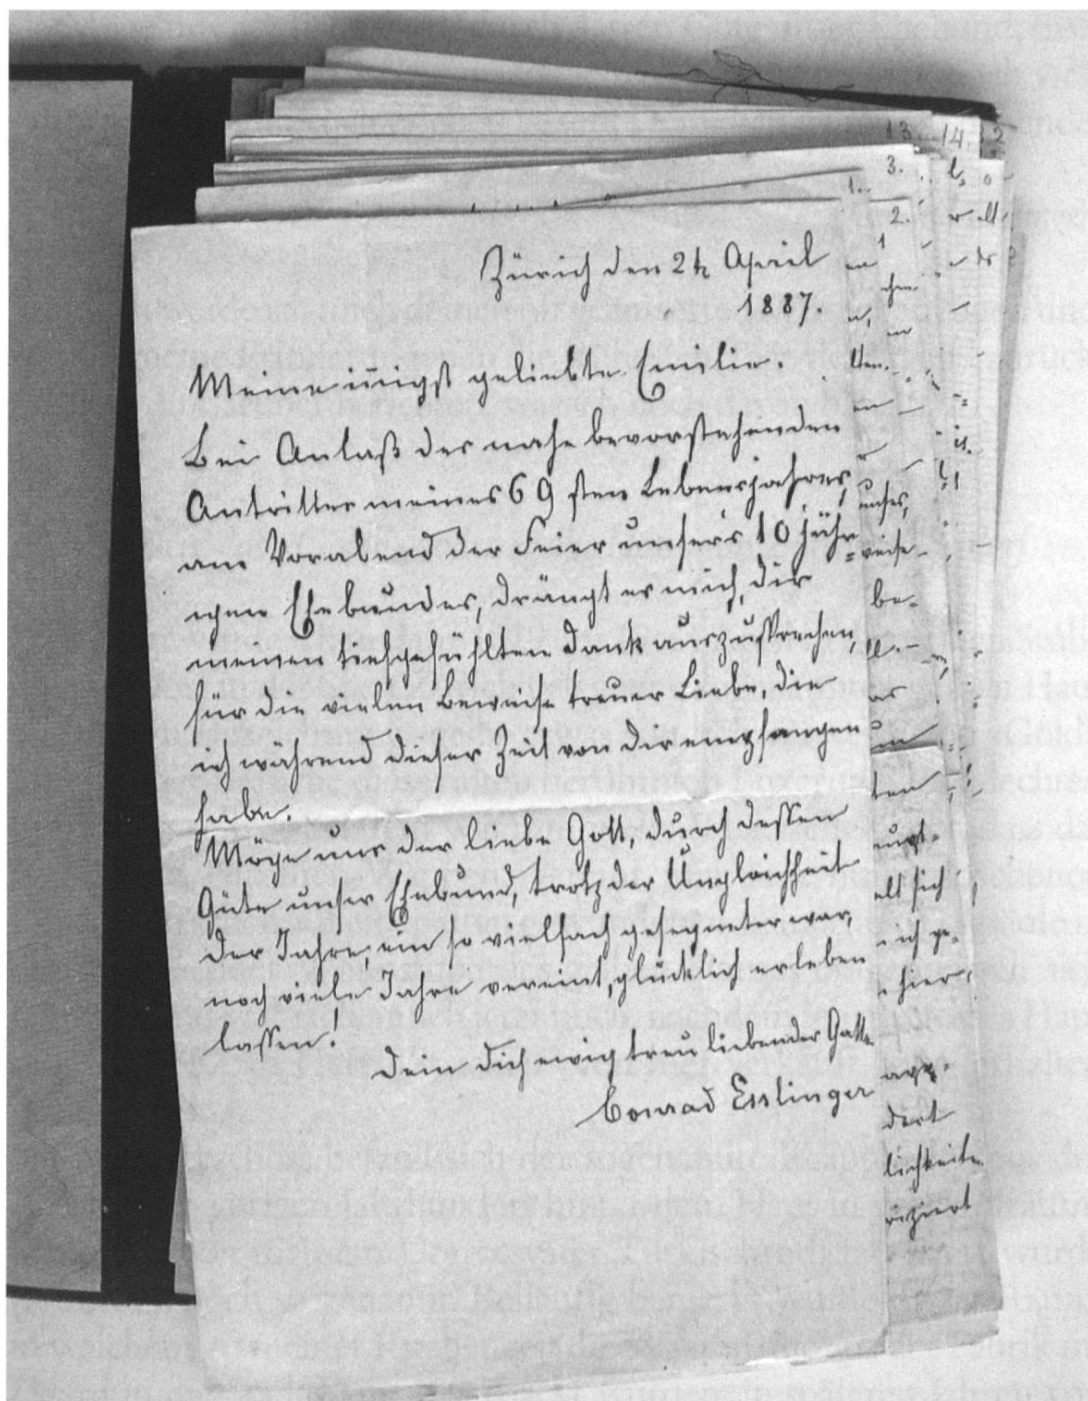 Zürich den 24 April
1887.
Meine in̄igst geliebte Emilie.
Bei Anlaß des nahe bevorstehenden
Antrittes meines 69sten Lebensjahres,
am Vorabend der Feier unsers 10 jähr=
igen Ehebundes, drängt es mich, dir
meinen tiefgefühlten Dank auszusprechen,
für die vielen Beweise treuer Liebe, die
ich während dieser Zeit von dir empfangen
habe.
Möge uns der liebe Gott, durch dessen
Güte unser Ehebund, trotz der Ungleichheit
der Jahre, ein so vielfach gesegneter war,
noch viele Jahre vereint, glücklich erleben
lassen!
Dein dich ewig treu liebender Gatte
Conrad Esslinger
13.
14.
3.
1.
2.
be=
ten
elt sich
ich ge=
hier
dert